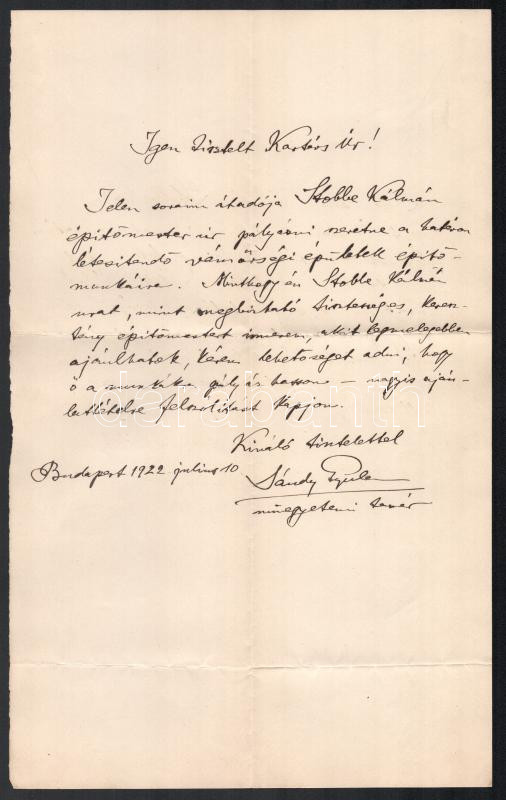 Igen tisztelt Kartárs Úr!
Jelen soraim átadója Stobbe Kálmán
építőmester úr pályázni szeretne a határon
létesítendő vámőrségi épületek építő-
munkáira. Minthogy én Stobbe Kálmán
urat, mint megbízható tisztességes, keresz-
tény építőmestert ismerem, akit legmelegebben
ajánlhatok, kérem lehetőséget adni, hogy
ő a munkák pályázhasson – vagyis aján-
lattételre felszólítást kapjon.
Kiváló tisztelettel
Budapest 1922 július 10
Sándy Gyula
műegyetemi tanár
darabanth